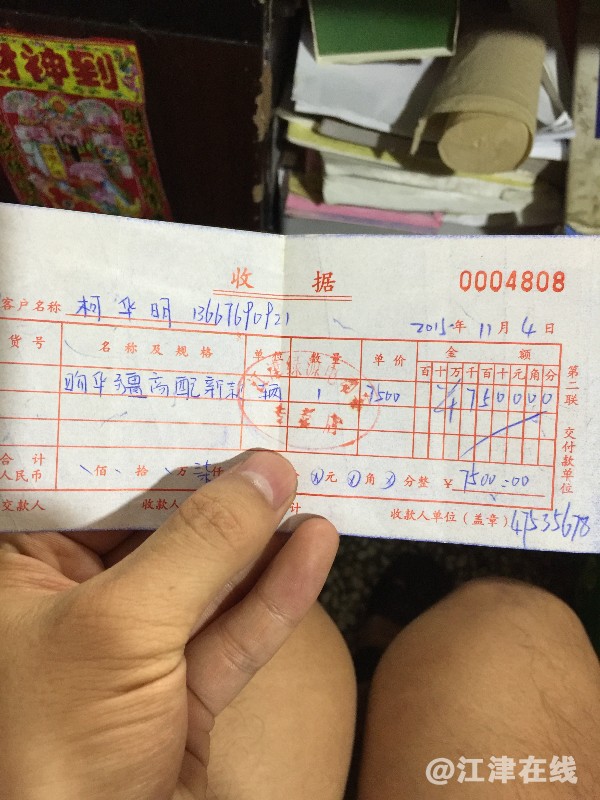 财神到
收据 0004808
客户名称 柯华明 13667690921 2015年11月4日
货号 名称及规格 单位 数量 单价 金额
百十万千百十元角分
高配新款 辆 1 7500 ¥750000
第二联 交付款单位
合计人民币 佰 拾 万柒仟 元 角 分整 ¥7500:00
交款人 收款人 收款人单位(盖章) 47535678
@江津在线